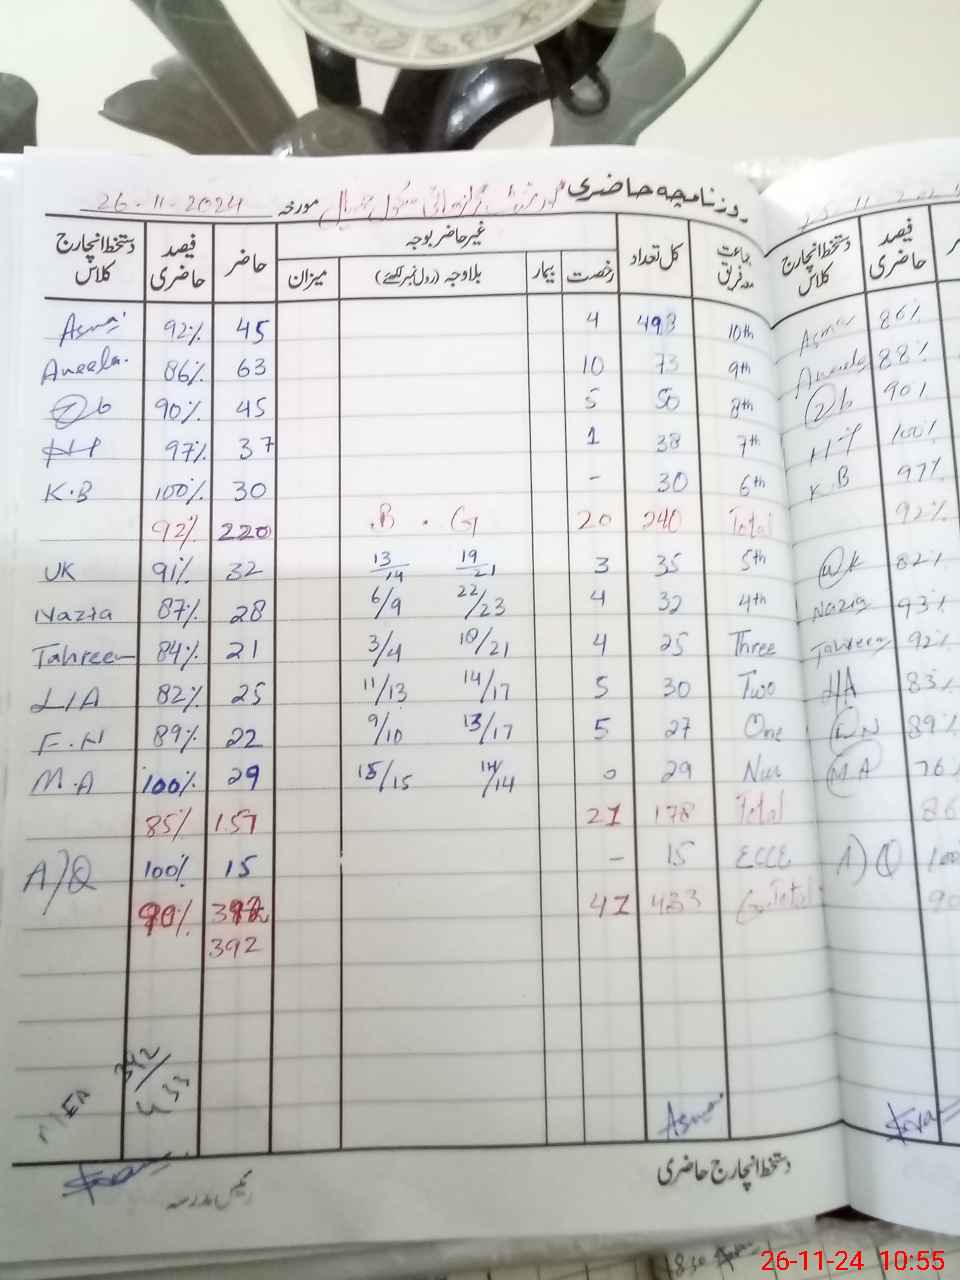 روزنامچہ حاضری گورنمنٹ گرلز ہائی سکول مورخہ 26-11-2024
جماعت معہ فریق کل تعداد غیر حاضر بوجہ حاضر فیصد حاضری دستخط انچارج کلاس
رخصت بیمار بلاوجہ (رول نمبر لکھئے) میزان
10th 49 4 45 92% Asma
9th 73 10 63 86% Aneela
8th 50 5 45 90% Zb
7th 38 1 37 97%
6th 30 - 30 100% K.B
Total 240 20 B . G 220 92%
5th 35 3 13/14 19/21 32 91% UK
4th 32 4 6/9 22/23 28 87% Nazia
Three 25 4 3/4 18/21 21 84% Tahreem
Two 30 5 11/13 14/17 25 82% LIA
One 27 5 9/10 13/17 22 89% F.N
Nur 29 0 15/15 14/14 29 100% M.A
Total 178 21 157 85%
ECCE 15 - 15 100% A/Q
G.Total 433 41 392 90%
392
MEA 392/433
Asma
دستخط انچارج حاضری
رئیس مدرسہ
دستخط انچارج کلاس فیصد حاضری
Asma 86%
Aneela 88%
Zb 90%
100%
K.B 97%
92%
UK 82%
Nazia 93%
Tahreem 92%
83%
89%
MA 76%
86
A)Q 100
90
26-11-24 10:55